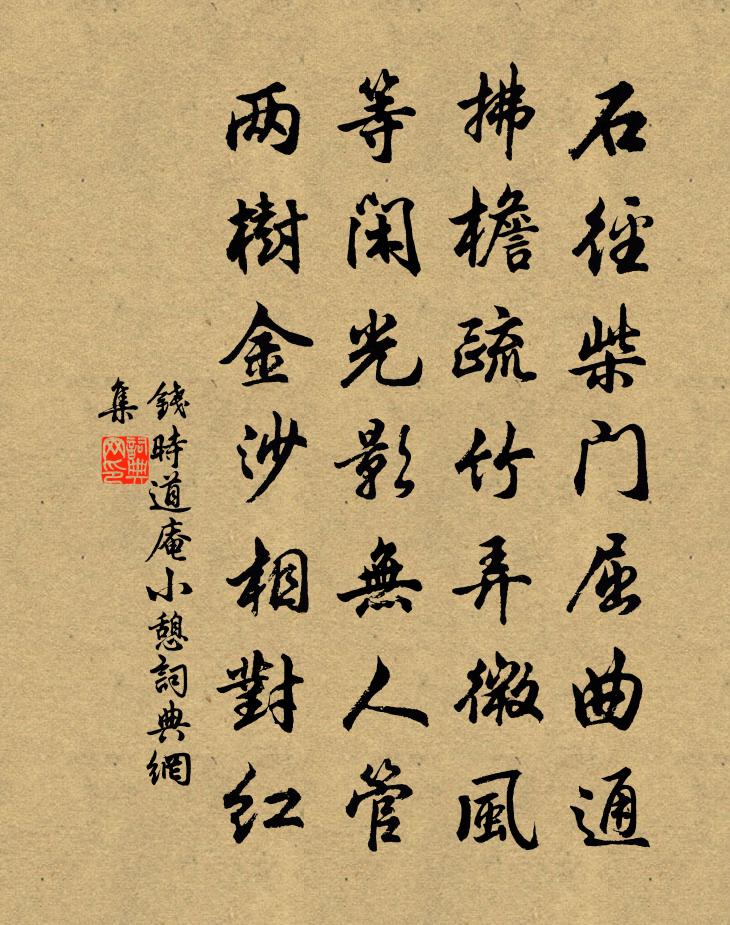 石徑柴門屈曲通
拂檐疏竹弄微風
等閑光影無人管
两樹金沙相對紅
錢時道庵小憩詞典網
集
詞典
网印